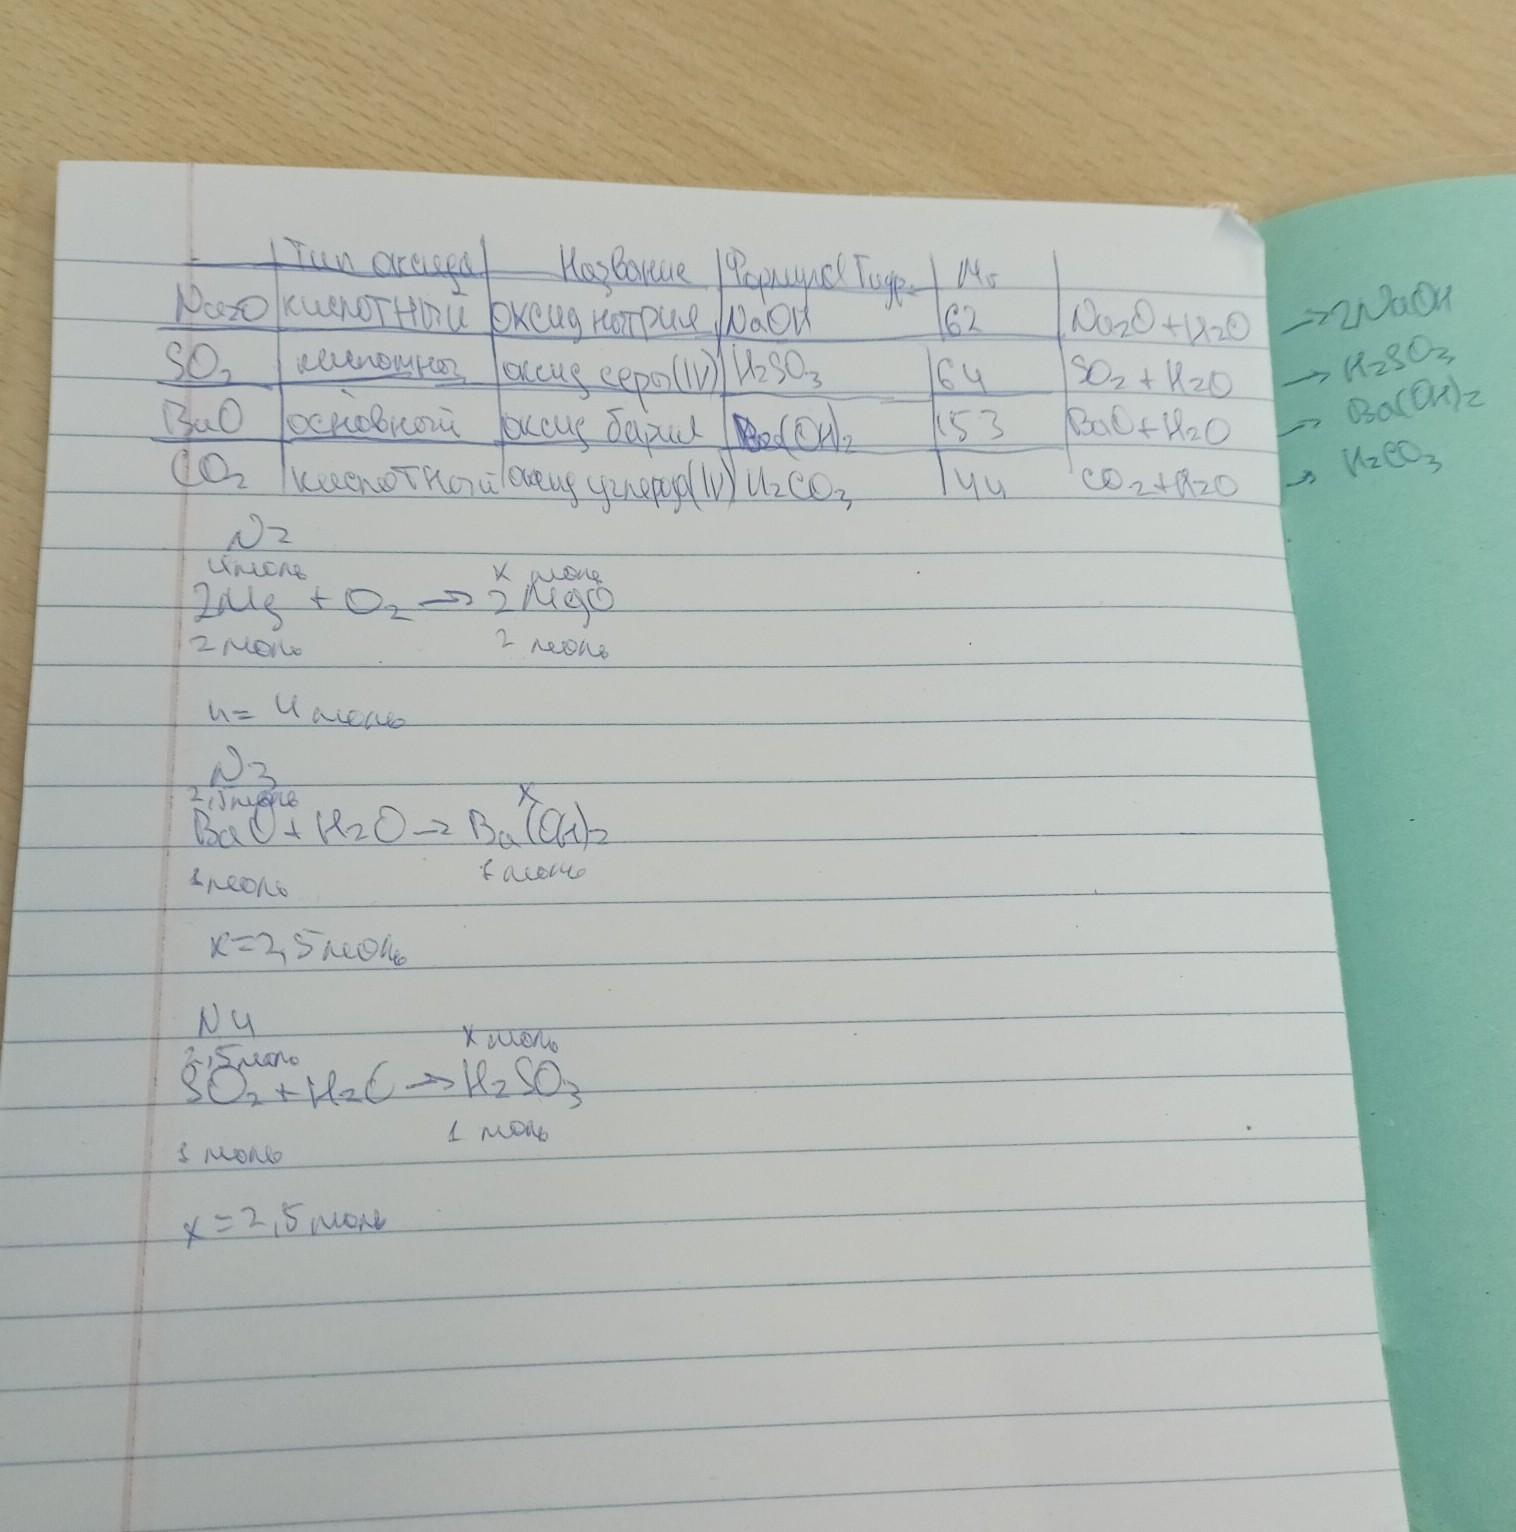 Тип оксида Название Формула Гидр. Mr
Na2O кислотный оксид натрия NaOH 62 Na2O+H2O →2NaOH
SO2 кислотный оксид серы(IV) H2SO3 64 SO2+H2O → H2SO3
BaO основный оксид бария Ba(OH)2 153 BaO+H2O → Ba(OH)2
CO2 кислотный оксид углерода(IV) H2CO3 44 CO2+H2O → H2CO3
N2
4моль x моль
2Mg + O2 → 2MgO
2 моль 2 моль
n= 4 моль
N3
2,5моль x
BaO+H2O→Ba(OH)2
1моль 1 моль
x=2,5моль
N4
2,5моль x моль
SO2+H2O→H2SO3
1 моль 1 моль
x=2,5моль